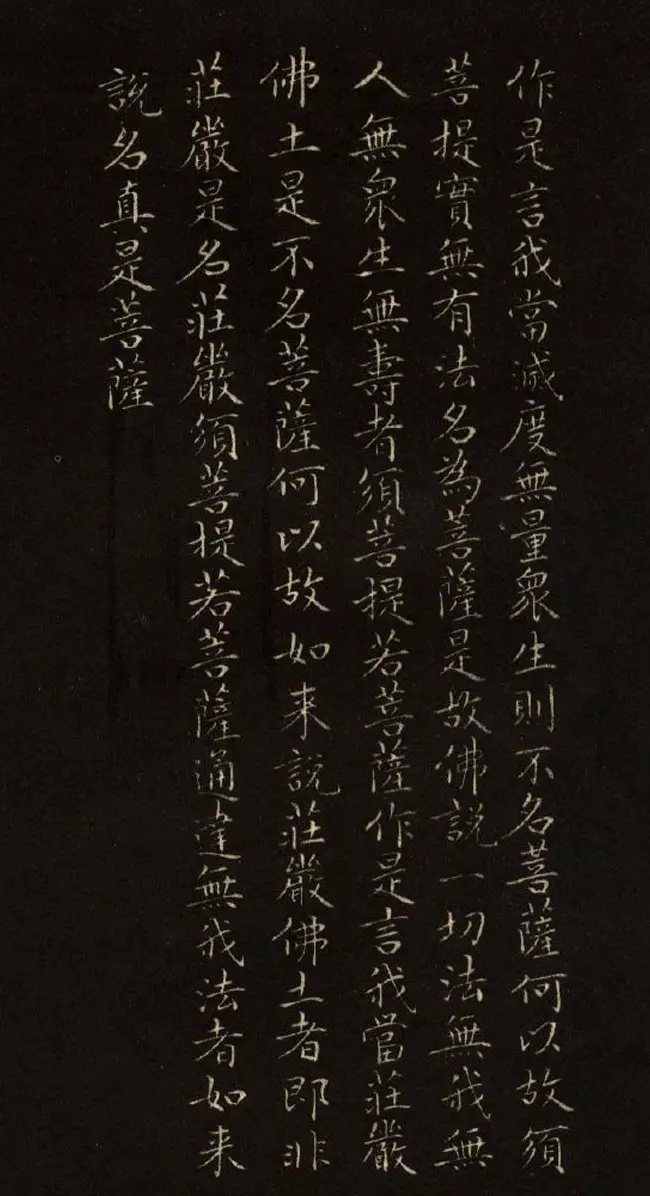 作是言我當滅度無量眾生則不名菩薩何以故須
菩提實無有法名為菩薩是故佛說一切法無我無
人無眾生無壽者須菩提若菩薩作是言我當莊嚴
佛土是不名菩薩何以故如来說莊嚴佛土者即非
莊嚴是名莊嚴須菩提若菩薩通達無我法者如来
說名真是菩薩